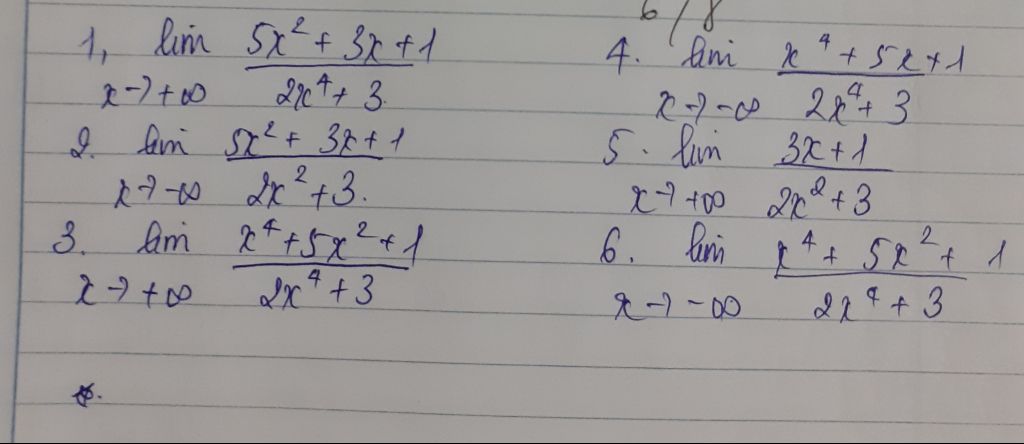 6/8
1, lim 5x² + 3x + 1
x → +∞ 2x⁴ + 3.
2. lim 5x² + 3x + 1
x → -∞ 2x² + 3.
3. lim x⁴ + 5x² + 1
x → +∞ 2x⁴ + 3
4. lim x⁴ + 5x + 1
x → -∞ 2x⁴ + 3
5. lim 3x + 1
x → +∞ 2x² + 3
6. lim x⁴ + 5x² + 1
x → -∞ 2x⁴ + 3